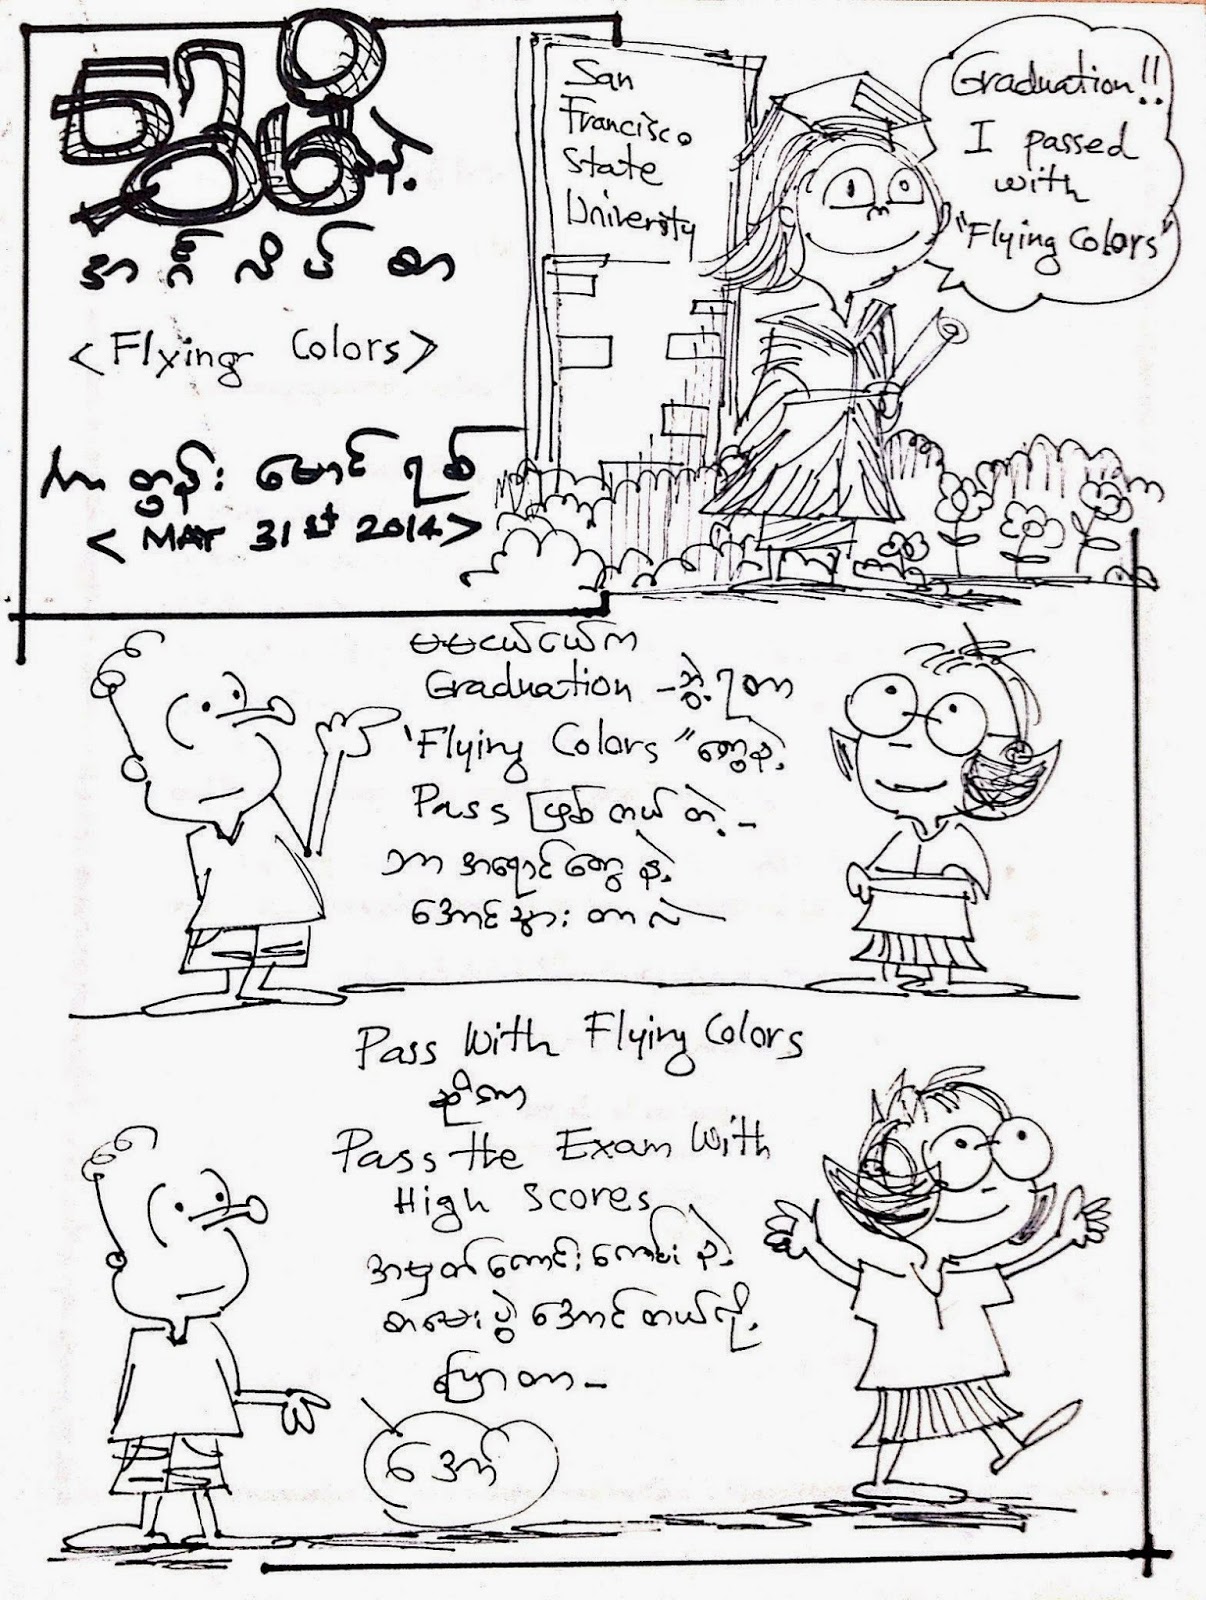 အင်္ဂလိပ်စာ
<Flying Colors>
ကာတွန်း မောင်ရစ်
< MAY 31st 2014>
San
Francisco
State
University
Graduation!!
I passed
with
"Flying Colors"
မမငယ်ငယ်က
Graduation - ဘွဲ့ရတာ
"Flying Colors" တွေနဲ့
Pass ဖြစ်တယ် တဲ့ -
ဘာ အရောင်တွေ နဲ့
အောင်သွား တာလဲ -
Pass With Flying Colors
ဆိုတာ
Pass the Exam With
High Scores
အမှတ်ကောင်းကောင်းနဲ့
စာမေးပွဲ အောင်တယ်လို့
ပြောတာ -
အော်